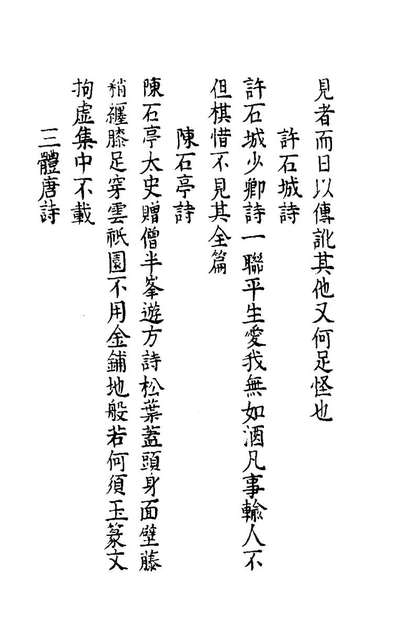 見者而日以傳訛其他又何足怪也
許石城詩
許石城少卿詩一聯平生愛我無如酒凡事輸人不
但棋惜不見其全篇
陳石亭詩
陳石亭太史贈僧半峯遊方詩松葉蓋頭身面壁藤
稍纒膝足穿雲祇園不用金鋪地般若何須玉篆文
拘虛集中不載
三體唐詩